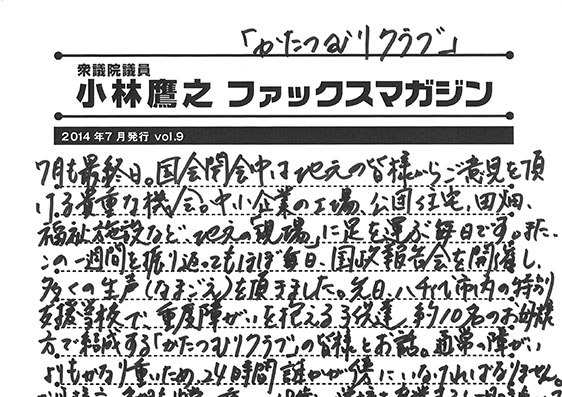 「かたつむりクラブ」
衆議院議員
小林鷹之 ファックスマガジン
2014年7月発行 vol.9
7月も最終日。国会閉会中は地元の皆様からご意見を頂
ける貴重な機会。中小企業の工場、公園、住宅、田畑、
福祉施設など、地元の「現場」に足を運ぶ毎日です。また、
この一週間を振り返ってもほぼ毎日、国政報告会を開催し、
多くの生声(なまごえ)を頂きました。先日、八千代市内の特別
支援学校で、重度障がいを抱える子供達、約10名のお母様
方で結成する「かたつむりクラブ」の皆様とお話。通常の障がい
よりもかなり重いため、24時間誰かが傍にいなければなりません。